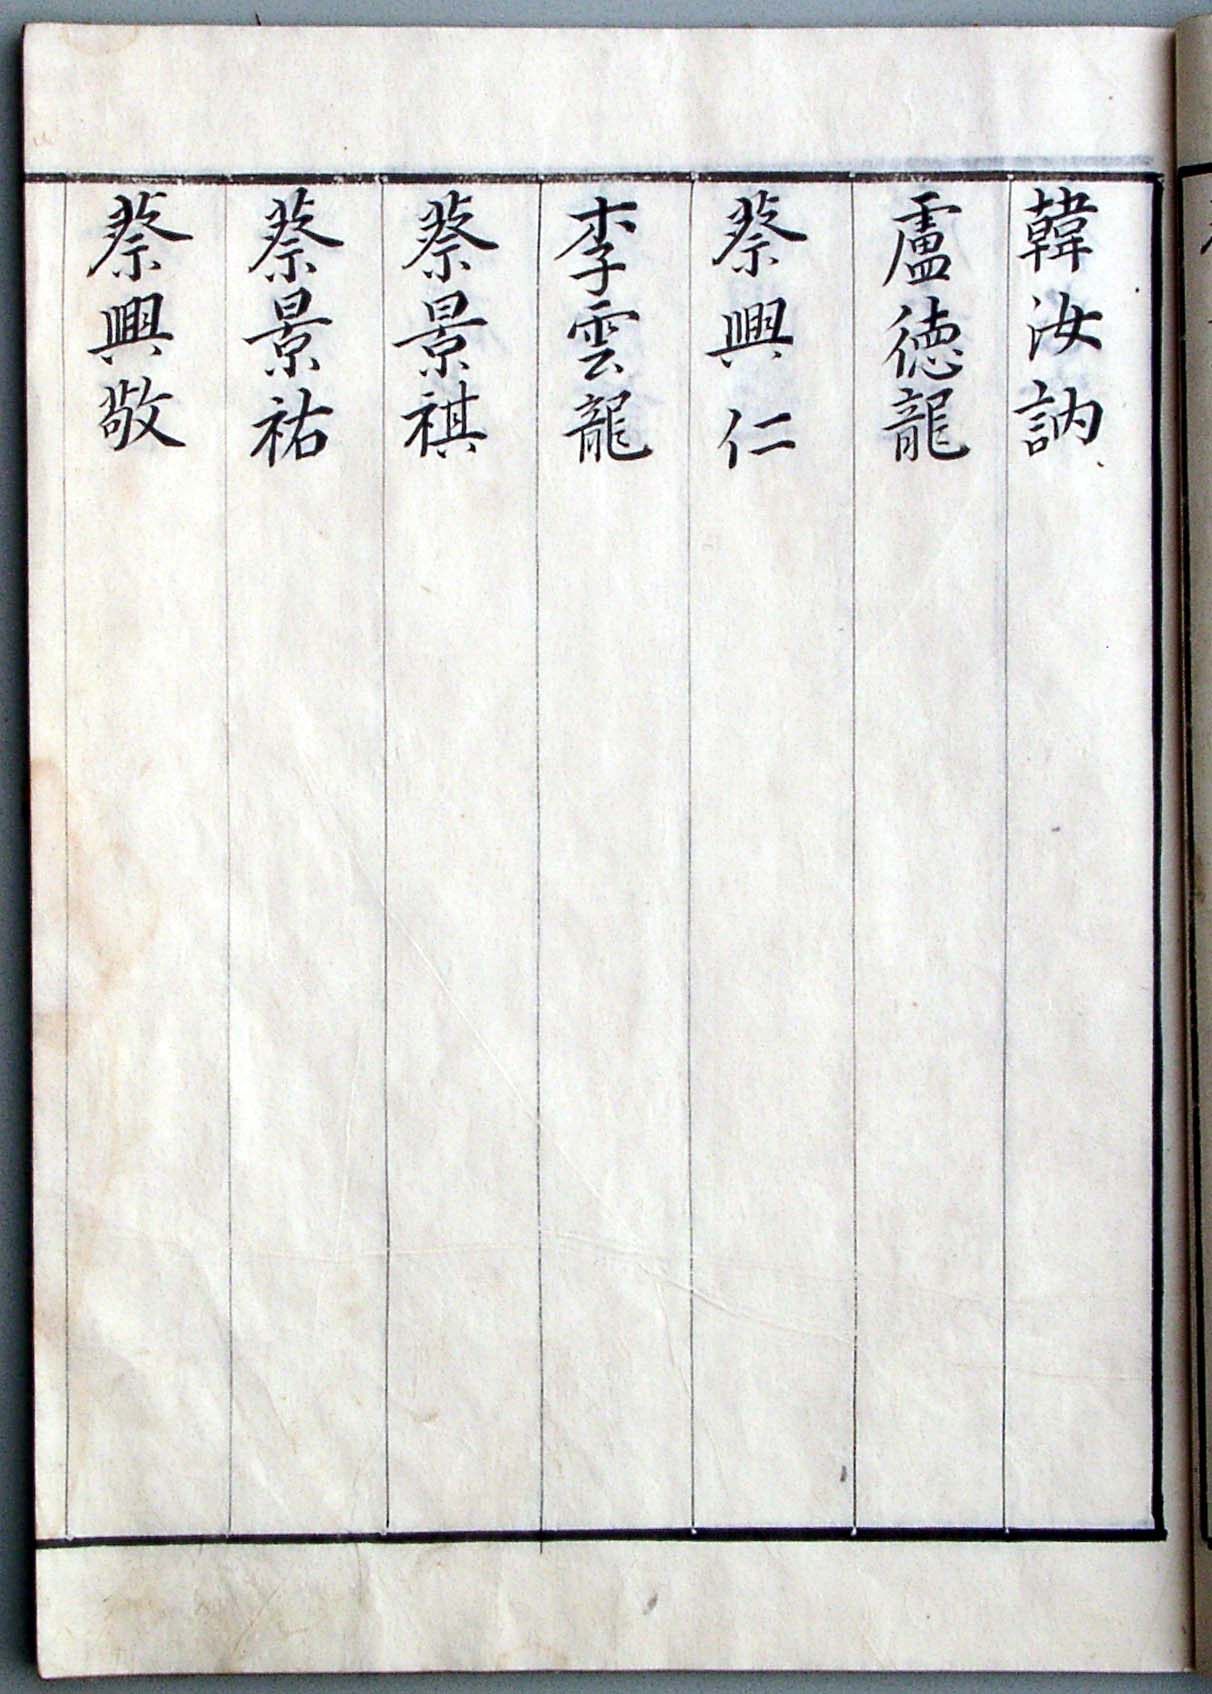 韓汝訥
盧德龍
蔡興仁
李雲龍
蔡景祺
蔡景祐
蔡興敬